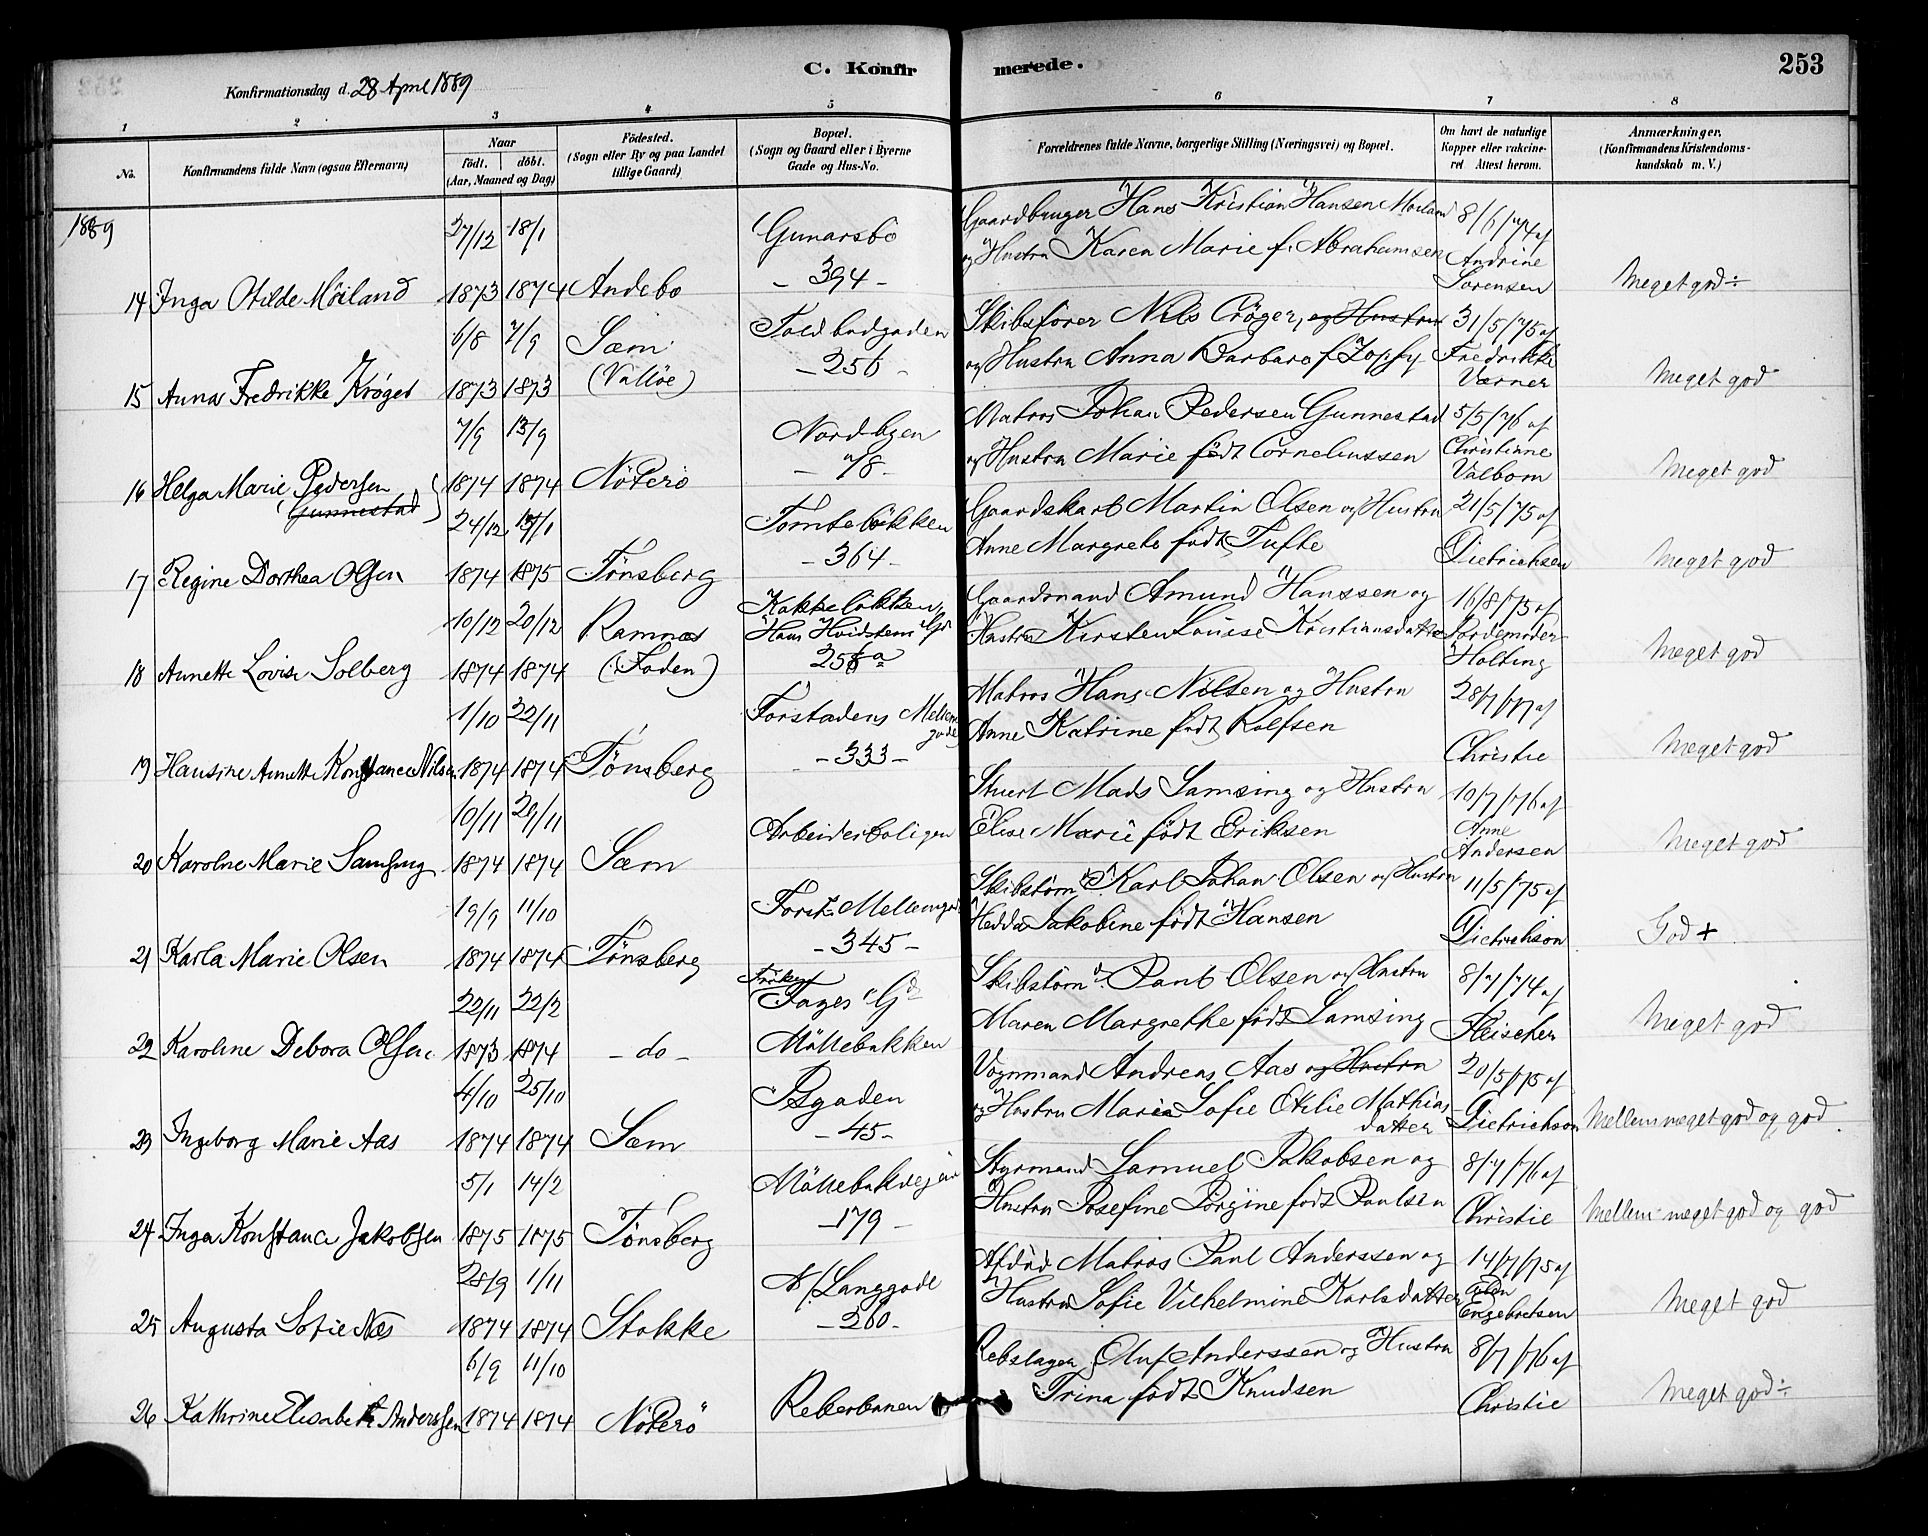 C. Konfirmerede.
253
Konfirmationsdag d. 28 April 1889
1 2 3 4 5 6 7 8
No.
Konfirmandens fulde Navn (ogsaa Efternavn)
Naar
født. døbt.
(Aar, Maaned og Dag)
Fødested.
(Sogn eller By og paa Landet
tillige Gaard)
Bopæl.
(Sogn og Gaard eller i Byerne
Gade og Hus-No.
Forældrenes fulde Navne, borgerlige Stilling (Næringsvei) og Bopæl.
Om havt de naturlige
Kopper eller vakcine-
ret Attest herom.
Anmærkninger.
(Konfirmandens Kristendoms-
kundskab m. V.)
1889
27/12 18/1 Gunarsbö Gaardbruger Hans Kristian Hansen Moiland 8/6/74 af
og Hustru Karen Marie f. Abrahamsen Andrine
14 Inga Otilde Möiland 1873 1874 Andebo - 394 - Sørensen Meget god ÷
6/8 7/9 Sæm Toldbodgaden Skibsfører Nils Crøger, og Hustru 31/5/75 af
og Hustru Anna Barbara f. Zopfy Fredrikke
15 Anna Fredrikke Krøger 1873 1873 (Valløe) - 256 - Værner Meget god
7/9 13/9 Nordbyen Matros Johan Pedersen Gunnestad 5/5/76 af
og Hustru Marie født Corneliussen Christianne
16 Helga Marie Pedersen (Gunnestad) 1874 1874 Nöterö - 78 - Valbom Meget god
24/12 17/1 Tomteløkken Gaardskarl Martin Olsen og Hustru 21/5/75 af
Anne Margrete født Tufte
17 Regine Dorthea Olsen 1874 1875 Tønsberg - 364 - Dietrichsen Meget god
10/12 20/12 Ramnæs Kokkeløkken Gaardmand Amund Hanssen og 16/8/75 af
Hans Hvidstens Gd Hustru Kirsten Louise Kristiansdatter Jordemoder
18 Annette Lovise Solberg 1874 1874 (Foden) 256a Holting Meget god
1/10 22/11 Forstadens Mellemgade Matros Hans Nilsen og Hustru 28/7/77 af
Anne Katrine født Rolfsen
19 Hansine Annette Konstance Nilsen 1874 1874 Tønsberg - 333 - Christie Meget god
10/11 29/11 Arbeiderboligen Stuert Mads Samsing og Hustru 10/7/76 af
Elise Marie født Eriksen Anne
20 Karoline Marie Samsing 1874 1874 Sæm Andersen Meget god
19/9 11/10 Forst. Mellemgade Skibstømd. Karl Johan Olsen og Hustru 11/5/75 af
Hedda Jakobine født Hansen
21 Karla Marie Olsen 1874 1874 Tønsberg - 345 - Dietrichson God +
22/11 22/2 Frøken Fayes Gd Skibstømd. Paul Olsen og Hustru 8/7/74 af
Maren Margrethe født Samsing
22 Karoline Debora Olsen 1873 1874 - do - Møllebakken Fleischer Meget god
4/10 25/10 Isgaden Vognmand Andreas Aas og Hustru 20/5/75 af
og Hustru Maria Sofie Otilie Mathiasdatter
23 Ingeborg Marie Aas 1874 1874 Sæm - 45 - Dietrichson Mellem meget god og god
5/1 14/2 Møllebakvejen Styrmand Samuel Jakobsen og 8/7/76 af
Hustru Josefine Jørgine født Paulsen
24 Inga Konstance Jakobsen 1875 1875 Tønsberg - 179 - Christie Mellem meget god og god
28/9 1/11 N/ Langgade Afdød Matros Paul Anderssen og 14/7/75 af
Hustru Sofie Vilhelmine Karlsdatter
25 Augusta Sofie Næs 1874 1874 Stokke - 260 - Engebretsen Meget god
6/9 11/10 Reberbanen Rebslager Oluf Anderssen og Hustru 8/7/76 af
Trina født Knudsen
26 Kathrine Elisabeth Anderssen 1874 1874 Nöterö Christie Meget god ÷